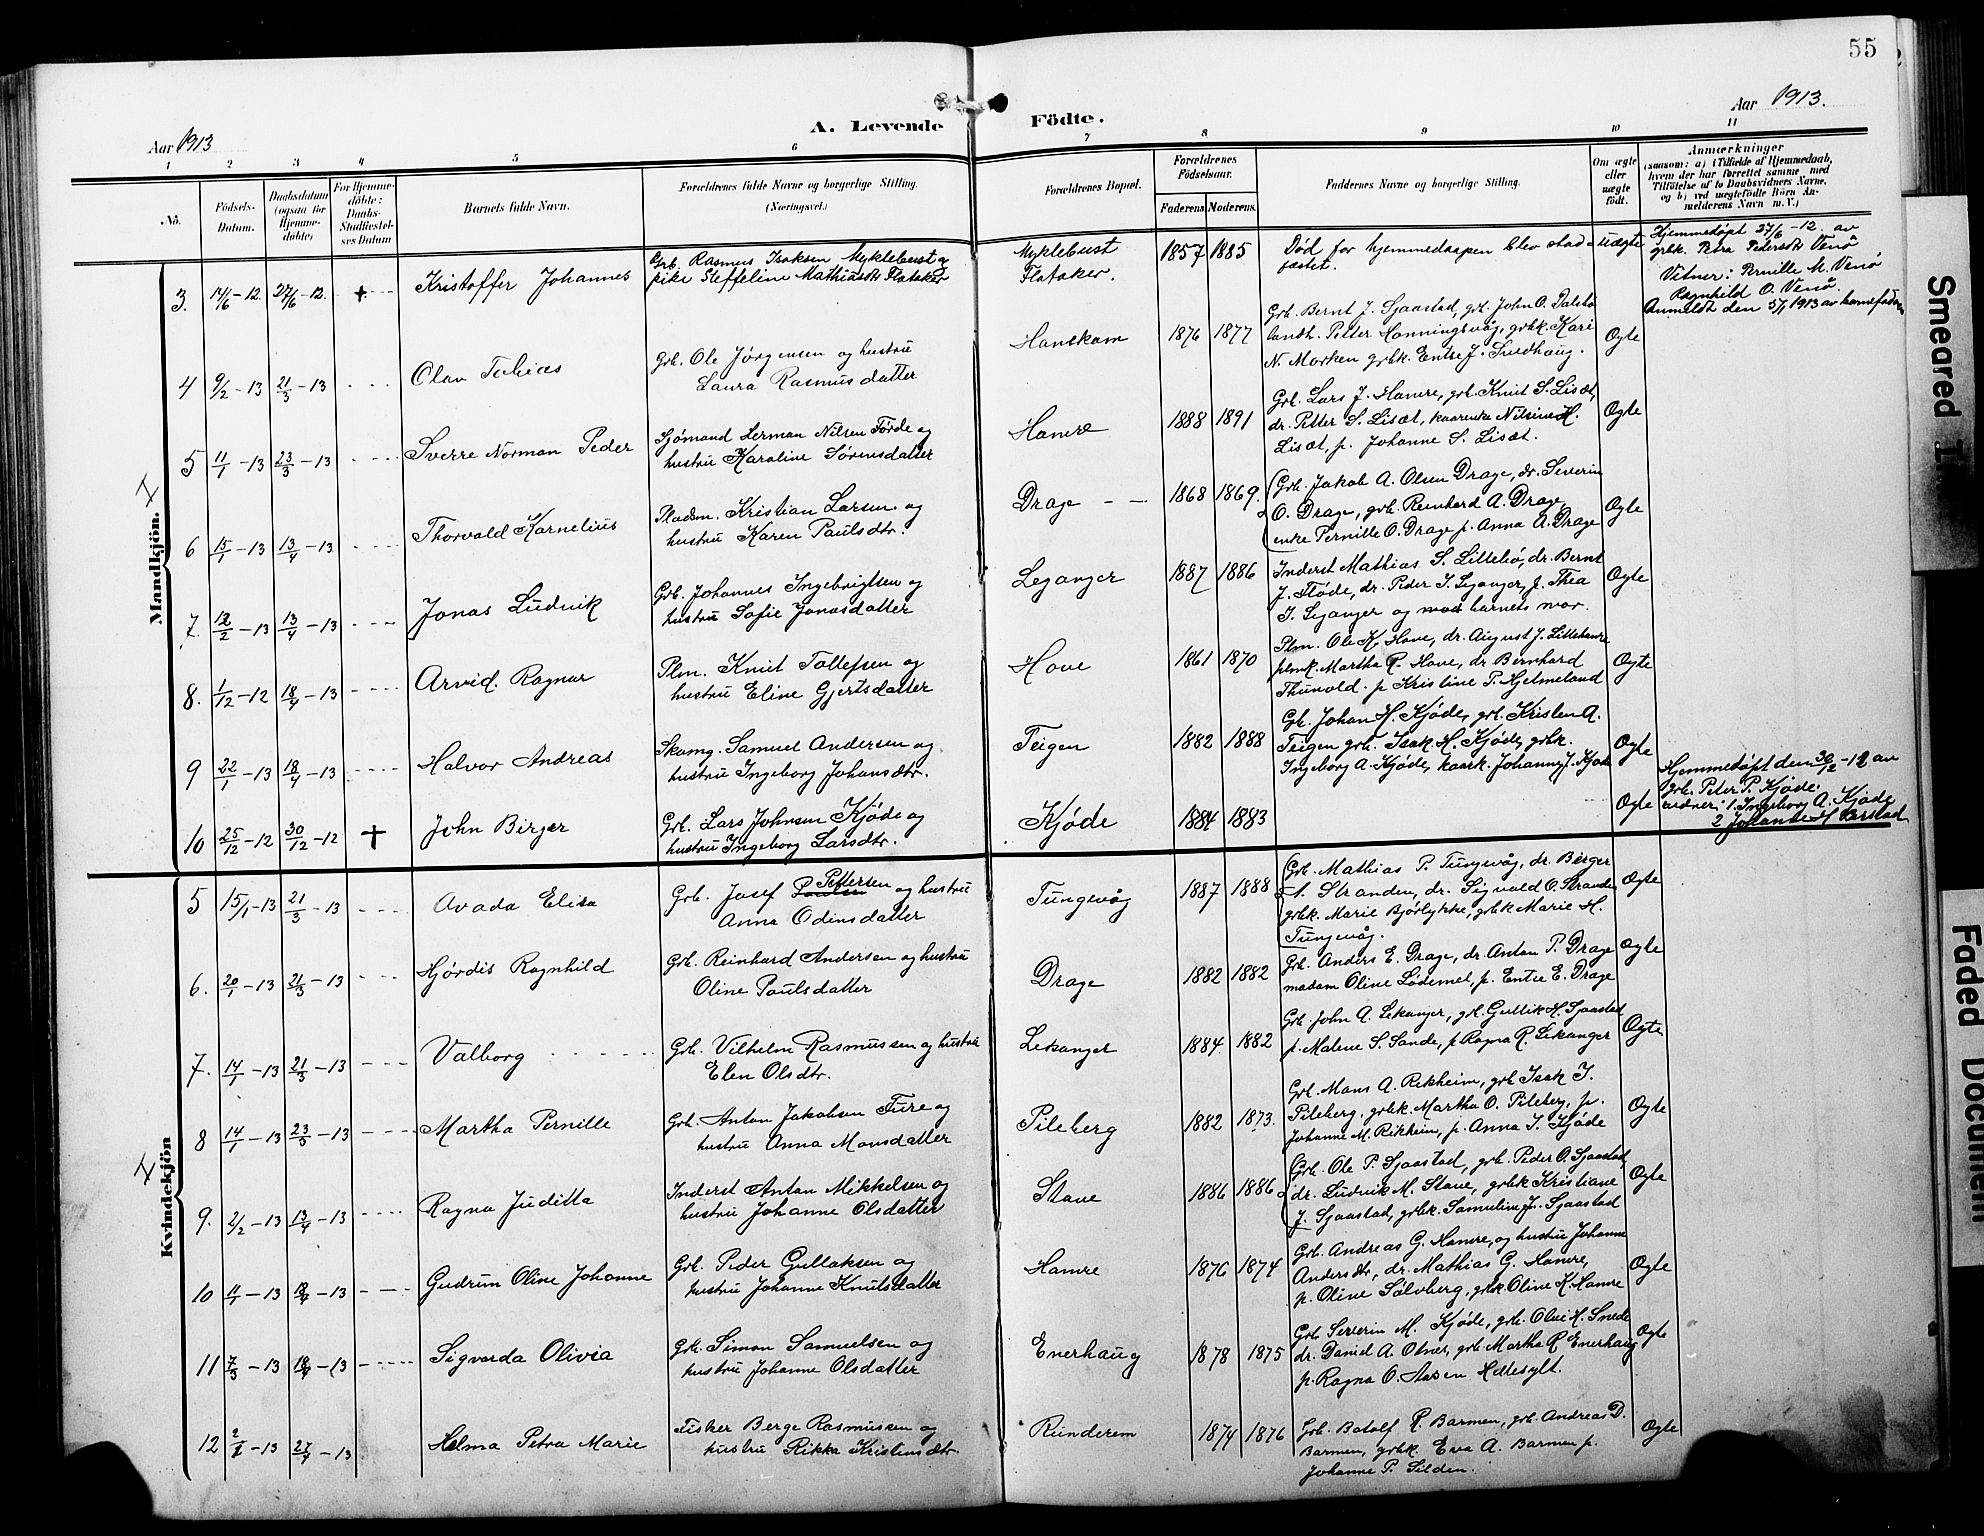 55
Aar 1913.
A. Levende Födte.
Aar 1913.
1 2 3 4 5 6 7 8 9 10 11
No.
Födsels-Datum.
Daabsdatum (ogsaa for Hjemme-döbte)
For Hjemme-döbte: Daabs-Stadfæstel-ses Datum
Barnets fulde Navn.
Forældrenes fulde Navne og borgerlige Stilling.
(Næringsvei.)
Forældrenes Bopæl.
Forældrenes Födselsaar.
Faderens. Moderens.
Faddernes Navne og borgerlige Stilling.
Om ægte eller uægte födt.
Anmærkninger
(saasom: a) i Tilfælde af Hjemmedaab,
hvem der har forrettet samme, med
Tilföielse af to Daabsvidners Navne,
og b) ved uægtefödte Börn An-
melderens Navn m. V.)
Mandkjön.
3. 14/6-12. 27/6-12. + Kristoffer Johannes
Grb. Rasmus Isaksen Myklebust og
pike Steffeline Mathiasdtr Flataker
Myklebust
Flataker.
1857 1885
Död för hjemmedaapen blev stad-
fæstet.
uægte
Hjemmedøpt 27/6-12. av
grbk. Petra Pedersdtr Venö
Vitner: Pernille M. Venö
Ragnhild O. Venö.
Anmeldt den 5/1 1913 av barnefaderen
4 9/2-13 21/3-13 Olav Tobias
Grb. Ole Jörgensen og hustru
Laura Rasmusdatter
Hanekam
1876 1877
Grb. Bernt J. Sjaastad, grb. John O. Dalsbö
landh. Petter Honningsvåg, grbk. Kari
N. Morken grbk. Entse J. Snedhaug.
Ogte
5 11/1-13 23/3-13 Sverre Norman Peder
Sjömand Herman Nilsen Förde og
hustru Karoline Sörensdatter
Hamre
1888 1891
Grb. Lars J. Hamre, grb. Knut S. Lisæt,
dr. Petter S. Lisæt, kaarenke Nilsine H.
Lisæt, p. Johanne S. Lisæt.
Ogte
6 15/1-13 13/4-13 Thorvald Kornelius
Pladsm. Kristian Larsen og
hustru Karen Paulsdtr.
Drage
1868 1869.
Grb. Jakob A. Olsen Drage, dr. Severin
O. Drage, grb. Reinhard A. Drage,
enke Pernille O. Drage p. Anna A. Drage
Ogte
7. 12/2-13 13/4-13 Jonas Ludvik
Grb. Johannes Ingebrigtsen og
hustru Sofie Jonasdatter
Leganger
1887 1886
Inderst Mathias S. Littebö, dr. Bernt
J. Flöde, dr. Peder I. Leganger, p. Thea
I. Leganger og barnets mor.
Ogte
8. 1/12-12 18/4-13 Arvid Ragnar
Plm. Knut Tollefsen og
hustru Eline Gjertsdatter
Hove
1861 1870
Plm. Ole K. Hove, dr. August J. Littehamre
plmk. Martha R. Hove, dr Bernhard
Thunold. p Kristine P. Hjelmeland
Ogte
9 22/1-13 18/4-13 Halvor Andreas
Skomg. Samuel Andersen og
hustru Ingeborg Johansdtr.
Teigen
1882 1888
Grb. Johan H. Kjöde, grb. Kristen A.
Teigen grb. Isak H. Kjöde, grbk.
Ingeborg A. Kjöde, kaark. Johanne J. Kjöde
Ogte
10 25/12-12 30/12-12 + John Birger
Grb. Lars Johnsen Kjöde og
hustru Ingeborg Larsdtr.
Kjöde
1884 1883
Ogte
Hjemmedøpt den 30/12-12 av
grb. Peter P. Kjöde.
vidner: 1. Ingeborg A. Kjöde
2 Johanne M Færstad
Kvindekjön
5 15/1-13 21/3-13 Avada Elisa
Grb. Josef Pettersen og hustru
Anna Odinsdatter
Tungevåg
1887 1888
Grb. Mathias P. Tungevåg, dr. Berger
A. Stranden, dr. Sigvald O. Stranden
grbk. Marie Bjørlykke, grbk Marie H.
Tungevåg.
Ogte
6. 20/1-13 21/3-13 Hjördis Ragnhild
Grb. Reinhard Andersen og hustru
Oline Paulsdatter
Drage
1882 1882
Grb. Anders E. Drage, dr. Anton P. Drage
madam Oline Lödemel, p. Entse E. Drage
Ogte
7. 14/1-13 21/3-13 Valborg
Grb. Vilhelm Rasmussen og hustru
Elen Olsdtr.
Lekanger
1884. 1882
Grb. John A. Lekanger, grb. Gullik H. Sjaastad
p. Malene S. Sande, p. Ragna R. Lekanger
Ogte
8 14/1-13 23/3-13 Martha Pernille
Grb. Anton Jakobsen Fure og
hustru Anna Monsdatter
Pileberg
1882 1873.
Grb. Mons A. Rekheim, grb Isak I.
Pileberg, grbk. Martha O. Pileberg, p.
Johanne M. Rikheim, p. Anna I. Kjöde
Ogte
9. 2/2-13 13/4-13 Ragna Juditta
Inderst Anton Mikkelsen og
hustru Johanne Olsdatter
Stave
1886 1886
Grb. Ole P. Sjaastad, grb. Peder O. Sjaastad,
dr. Ludvik M. Stave, grbk Kristiane
J. Sjaastad, grbk. Samuline J. Sjaastad
Ogte
10 11/1-13 18/4-13 Gudrun Oline Johanne
Grb. Peder Gullaksen og
hustru Johanne Knutsdatter
Hamre
1876 1874
Grb. Andreas G. Hamre, og hustru Johanne
Andersdtr, dr. Mathias G. Hamre,
p. Oline Sølvberg, grbk Oline K. Hamre
Ogte
11 7/3-13 18/4-13 Sigvarda Olivia
Grb. Simon Samuelsen og
hustru Johanne Olsdatter
Enerhaug
1878 1875
Grb Severin M. Kjöde, grb. Olai H. Snede
dr. Daniel A. Otnes, grb Martha R Enerhaug
p. Ragna O. Aasen Hellesylt.
Ogte
12 2/1-13 27/4-13 Helma Petra Marie
Fisker Berge Rasmussen og
hustru Rikka Kristensdtr.
Runderem
1874 1876
Grb. Botolf R. Barmen, grb. Andreas D.
Barmen, grbk. Eva A. Barmen p.
Johanne P. Silden.
Ogte
Smeared
Faded Document